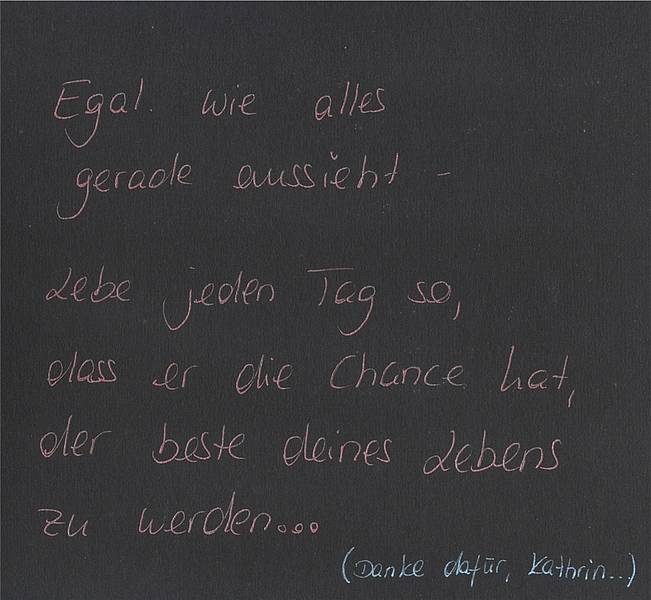 Egal. wie alles
gerade aussieht -
Lebe jeden Tag so,
dass er die Chance hat,
der beste deines Lebens
zu werden...
(Danke dafür, Kathrin...)